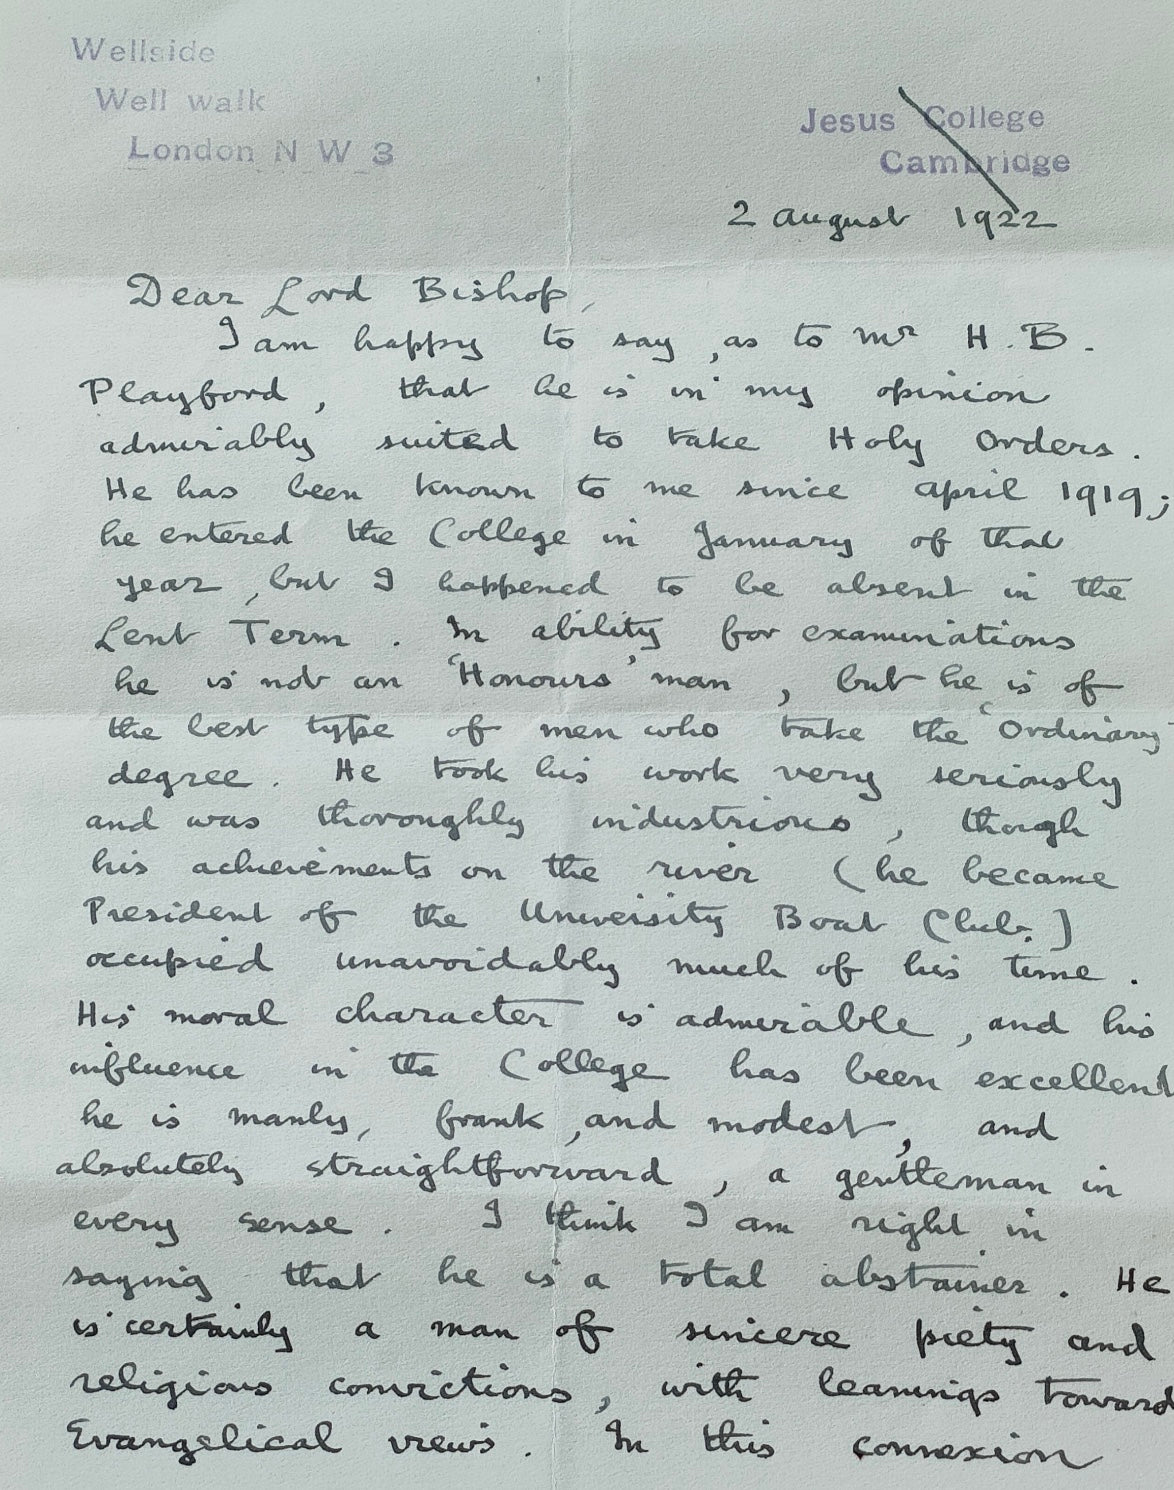 Wellside
Well walk
London N W 3
Jesus College
Cambridge
2 August 1922
Dear Lord Bishop,
I am happy to say, as to Mr H. B.
Playford, that he is in my opinion
admirably suited to take Holy Orders.
He has been known to me since April 1919;
he entered the College in January of that
year, but I happened to be absent in the
Lent Term. In ability for examinations
he is not an 'Honours' man, but he is of
the best type of men who take the 'Ordinary'
degree. He took his work very seriously
and was thoroughly industrious, though
his achievements on the river (he became
President of the University Boat Club.)
occupied unavoidably much of his time.
His moral character is admirable, and his
influence in the College has been excellent
he is manly, frank, and modest, and
absolutely straightforward, a gentleman in
every sense. I think I am right in
saying that he is a total abstainer. He
is certainly a man of sincere piety and
religious convictions, with leanings toward
Evangelical views. In this connexion